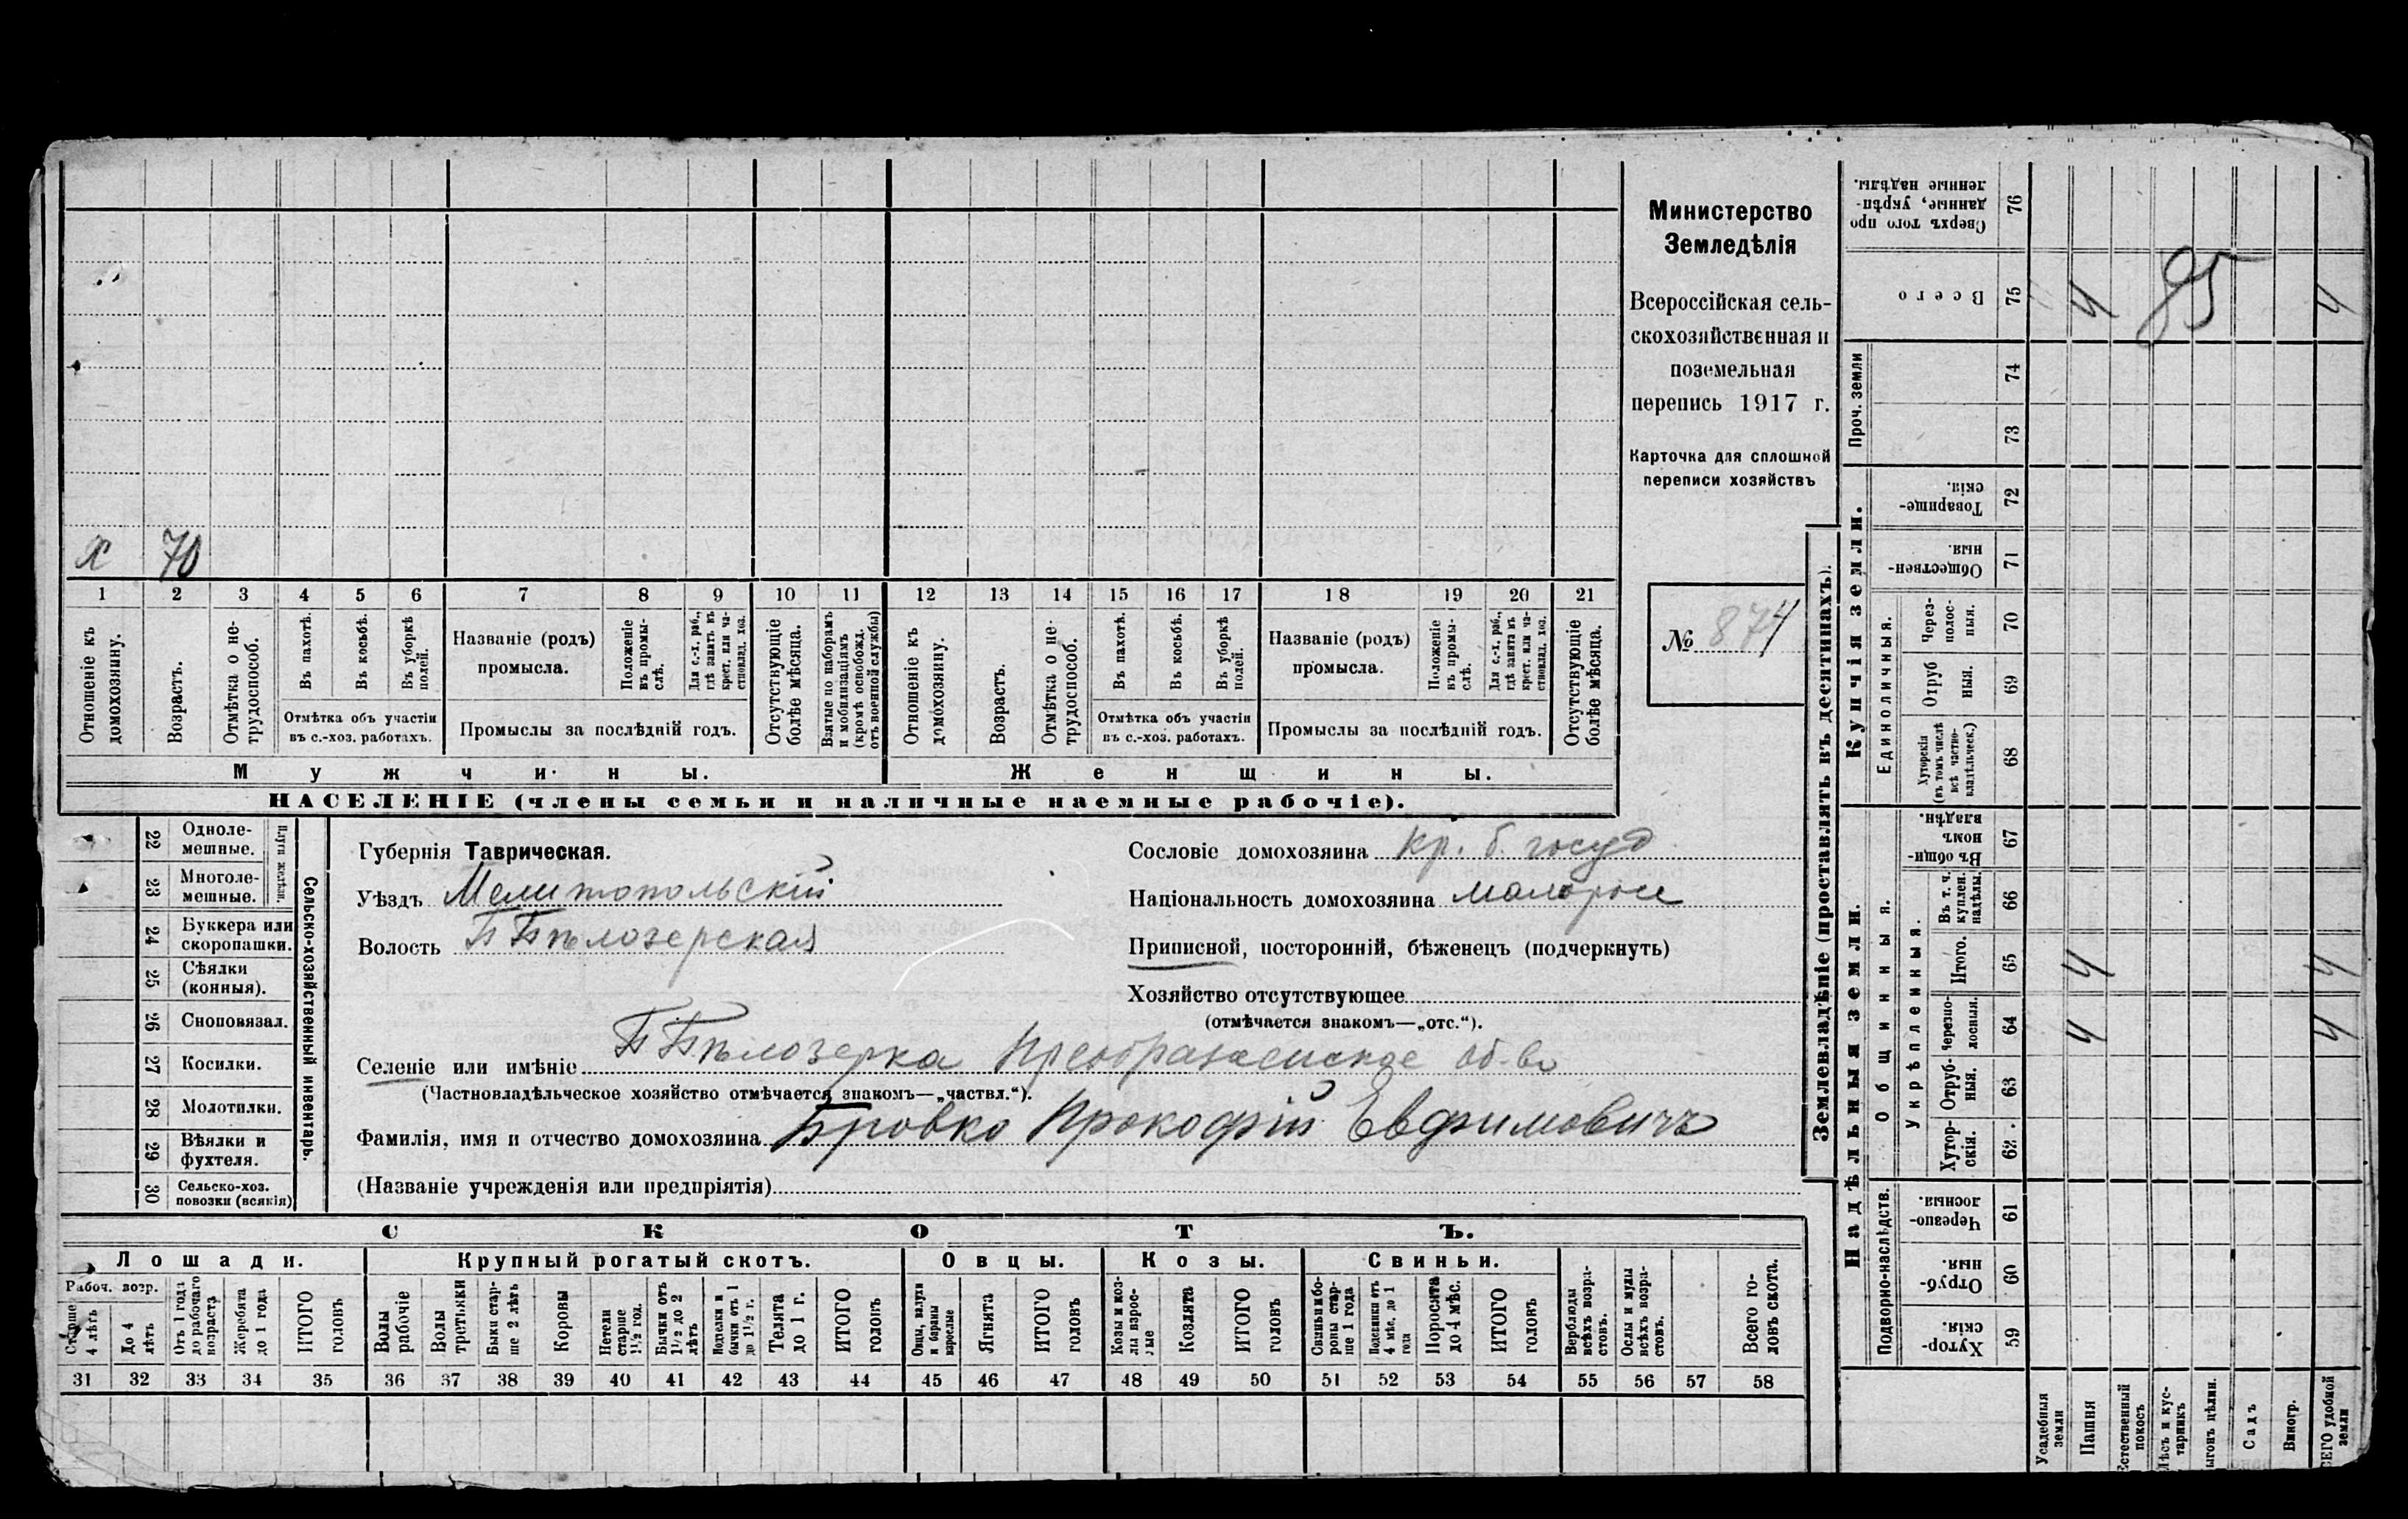 х 70
1 2 3 4 5 6 7 8 9 10 11 12 13 14 15 16 17 18 19 20 21
Отношеніе къ домохозяину.
Возрастъ.
Отмѣтка о не-
трудоспособ.
Въ пахотѣ.
Въ косьбѣ.
Въ уборкѣ полей.
Отмѣтка объ участіи
въ с.-хоз. работахъ.
Названіе (родъ)
промысла.
Положеніе въ промы-
слѣ.
Для с.-х. раб., гдѣ занятъ въ крест. или ча-
стновлад. хоз.
Промыслы за послѣдній годъ.
Отсутствующіе болѣе мѣсяца.
Взятые по наборамъ и мобилизаціямъ (кромѣ освобожд. отъ военной службы)
Отношеніе къ домохозяину.
Возрастъ.
Отмѣтка о не-
трудоспособ.
Въ пахотѣ.
Въ косьбѣ.
Въ уборкѣ полей.
Отмѣтка объ участіи
въ с.-хоз. работахъ.
Названіе (родъ)
промысла.
Положеніе въ промы-
слѣ.
Для с.-х. раб., гдѣ занята въ крест. или ча-
стновлад. хоз.
Промыслы за послѣдній годъ.
Отсутствующіе болѣе мѣсяца.
Мужчины.
Женщины.
НАСЕЛЕНІЕ (члены семьи и наличные наемные рабочіе).
Министерство
Земледѣлія
Всероссійская сель-
скохозяйственная и
поземельная
перепись 1917 г.
Карточка для сплошной
переписи хозяйствъ
№ 874
22 Одноле-
мешные.
23 Многоле-
мешные.
Плуги желѣзн.
24 Буккера или
скоропашки.
25 Сѣялки
(конныя).
26 Сноповязал.
27 Косилки.
28 Молотилки.
29 Вѣялки и
фухтеля.
30 Сельско-хоз.
повозки (всякія)
Сельско-хозяйственный инвентарь.
Губернія Таврическая.
Уѣздъ Мелитопольскій
Волость Б Бѣлозерская
Сословіе домохозяина кр. б. госуд
Національность домохозяина малоросс
Приписной, посторонній, бѣженецъ (подчеркнуть)
Хозяйство отсутствующее
(отмѣчается знакомъ—„отс.“).
Селеніе или имѣніе Б Бѣлозерка Преображенское об-во
(Частновладѣльческое хозяйство отмѣчается знакомъ—„частвл.“).
Фамилія, имя и отчество домохозяина Бровко Прокофій Евфимовичъ
(Названіе учрежденія или предпріятія)
СКОТЪ.
Лошади.
Крупный рогатый скотъ.
Овцы.
Козы.
Свиньи.
Рабоч. возр.
Старше 4 лѣтъ
До 4 лѣтъ
Отъ 1 года до рабочаго возраста
Жеребята до 1 года
ИТОГО головъ
Волы рабочіе
Волы третьяки
Быки стар-
ше 2 лѣтъ
Коровы
Нетели старше 1½ год.
Бычки отъ 1½ до 2 лѣтъ
Подтелки и бычки отъ 1 до 1½ г.
Телята до 1 г.
ИТОГО головъ
Овцы, валухи и бараны взрослые
Ягнята
ИТОГО головъ
Козы и коз-
лы взрос-
лые
Козлята
ИТОГО головъ
Свиньи и бо-
ровы стар-
ше 1 года
Подсвинки отъ 4 мѣс. до 1 года
Поросята до 4 мѣс.
ИТОГО головъ
Верблюды всѣхъ возра-
стовъ.
Ослы и мулы всѣхъ возра-
стовъ.
Всего го-
ловъ скота.
31 32 33 34 35 36 37 38 39 40 41 42 43 44 45 46 47 48 49 50 51 52 53 54 55 56 57 58
Землевладѣніе (проставлять въ десятинахъ).
Сверхъ того про
данные, укрѣп-
ленные надѣлы. 76
Всего 75 4 4
95
Проч. земли 74
73
Купчія земли.
Товарище-
скія. 72
Обществен-
ныя. 71
Единоличныя.
Через-
полос-
ныя. 70
Отруб
ныя. 69
Хуторскія
(въ томъ числѣ
всѣ частно-
владѣльческ.) 68
Надѣльныя земли.
Общинныя.
Въ общи-
номъ
владѣн. 67
Укрѣпленныя.
Въ т. ч.
куплен.
надѣлы. 66
Итого. 65 4 4
Черезпо-
лосныя. 64 4 4
Отруб-
ныя. 63
Хутор-
скія. 62
Подворно-наслѣдств.
Черезпо-
лосныя. 61
Отруб-
ныя. 60
Хутор-
скія. 59
Усадебныя земли
Пашня
Естественный покосъ
Лѣсъ и кус-
тарникъ
ыгонъ цѣлин.
Садъ
Виногр.
СЕГО удобной земли